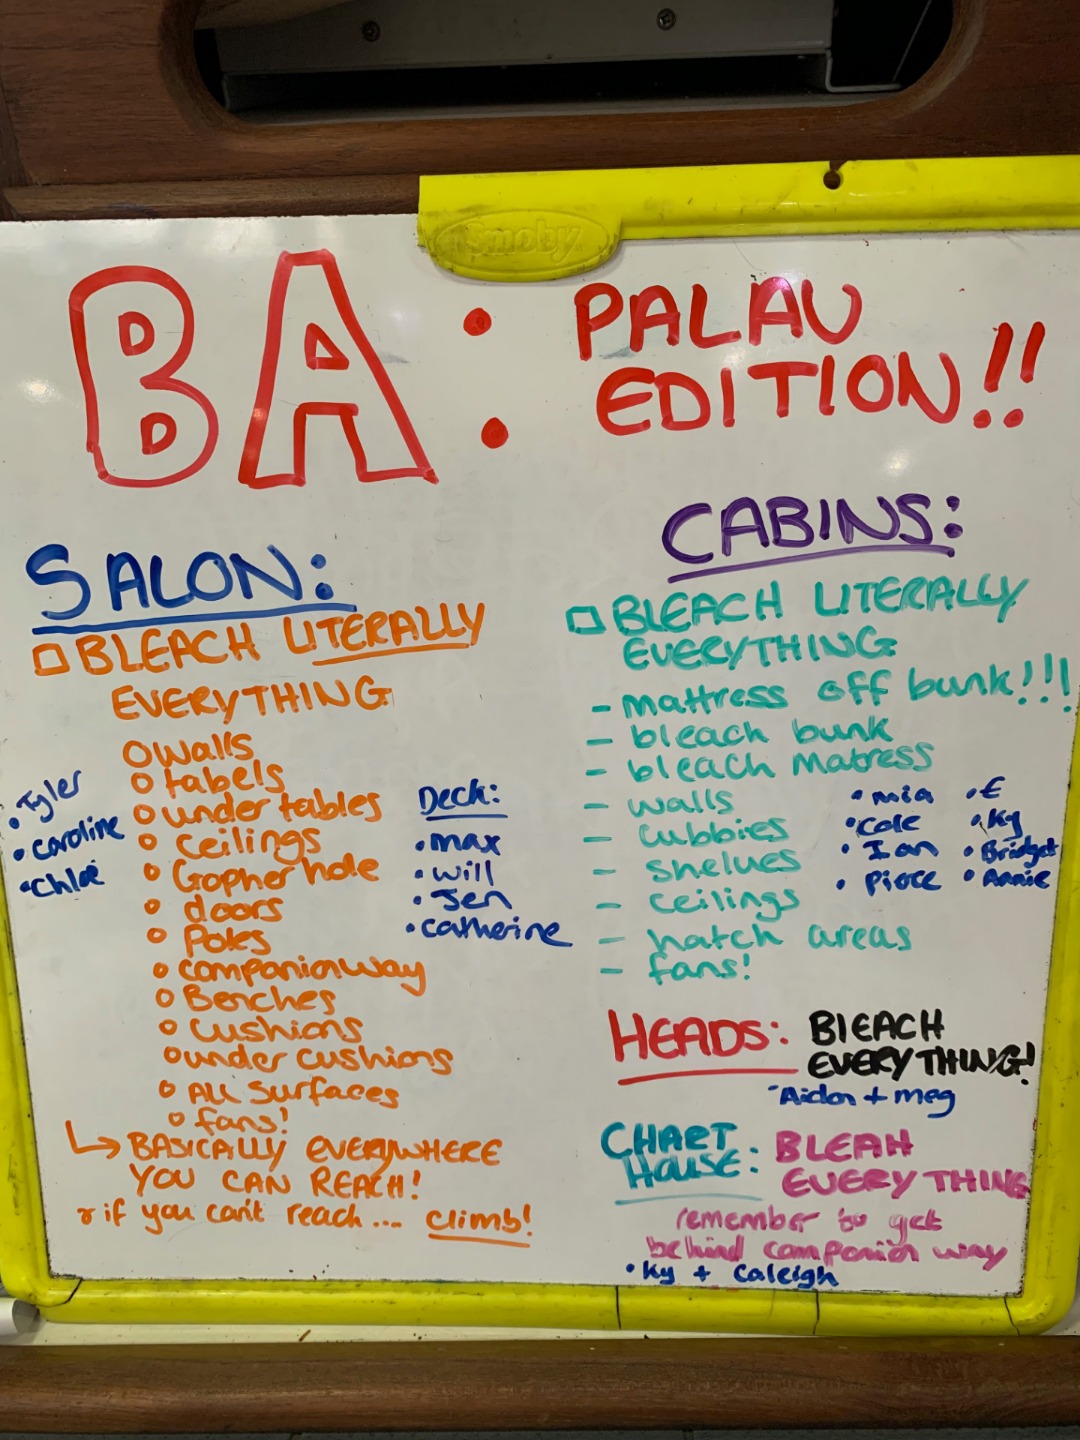 Smoby
BA:
PALAU
EDITION!!
SALON:
BLEACH LITERALLY
EVERYTHING
walls
tabels
under tables
ceilings
Gopher hole
doors
Poles
companionway
Benches
cushions
under cushions
ALL surfaces
fans!
↳ BASICALLY EVERYWHERE
YOU CAN REACH!
if you can't reach... climb!
• Tyler
• caroline
• Chloe
Deck:
• max
• will
• Jen
• catherine
CABINS:
BLEACH LITERALLY
EVERYTHING
- mattress off bunk!!!
- bleach bunk
- bleach matress
- walls
- cubbies
- shelves
- ceilings
- hatch areas
- fans!
• mia
• Cole
• Ian
• Pierce
• €
• Ky
• Bridget
• Annie
HEADS: BlEACH
EVERYTHING!
Aidan + meg
CHART
HOUSE: BLEAH
EVERYTHING
remember to get
behind companion way
• Ky + Caleigh